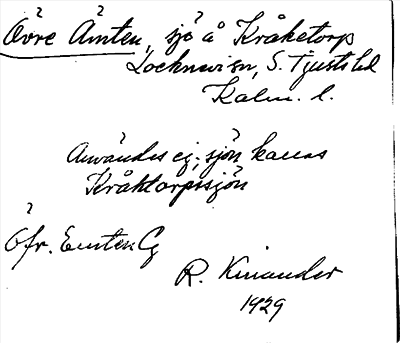 Övre Ämten, sjö å Kråketorp
Locknevi sn, S. Tjusts hd
Kalm. l.
Användes ej; sjön kallas
Kråktorpssjön
Öfr. Emten Cg
R. Kinander
1929